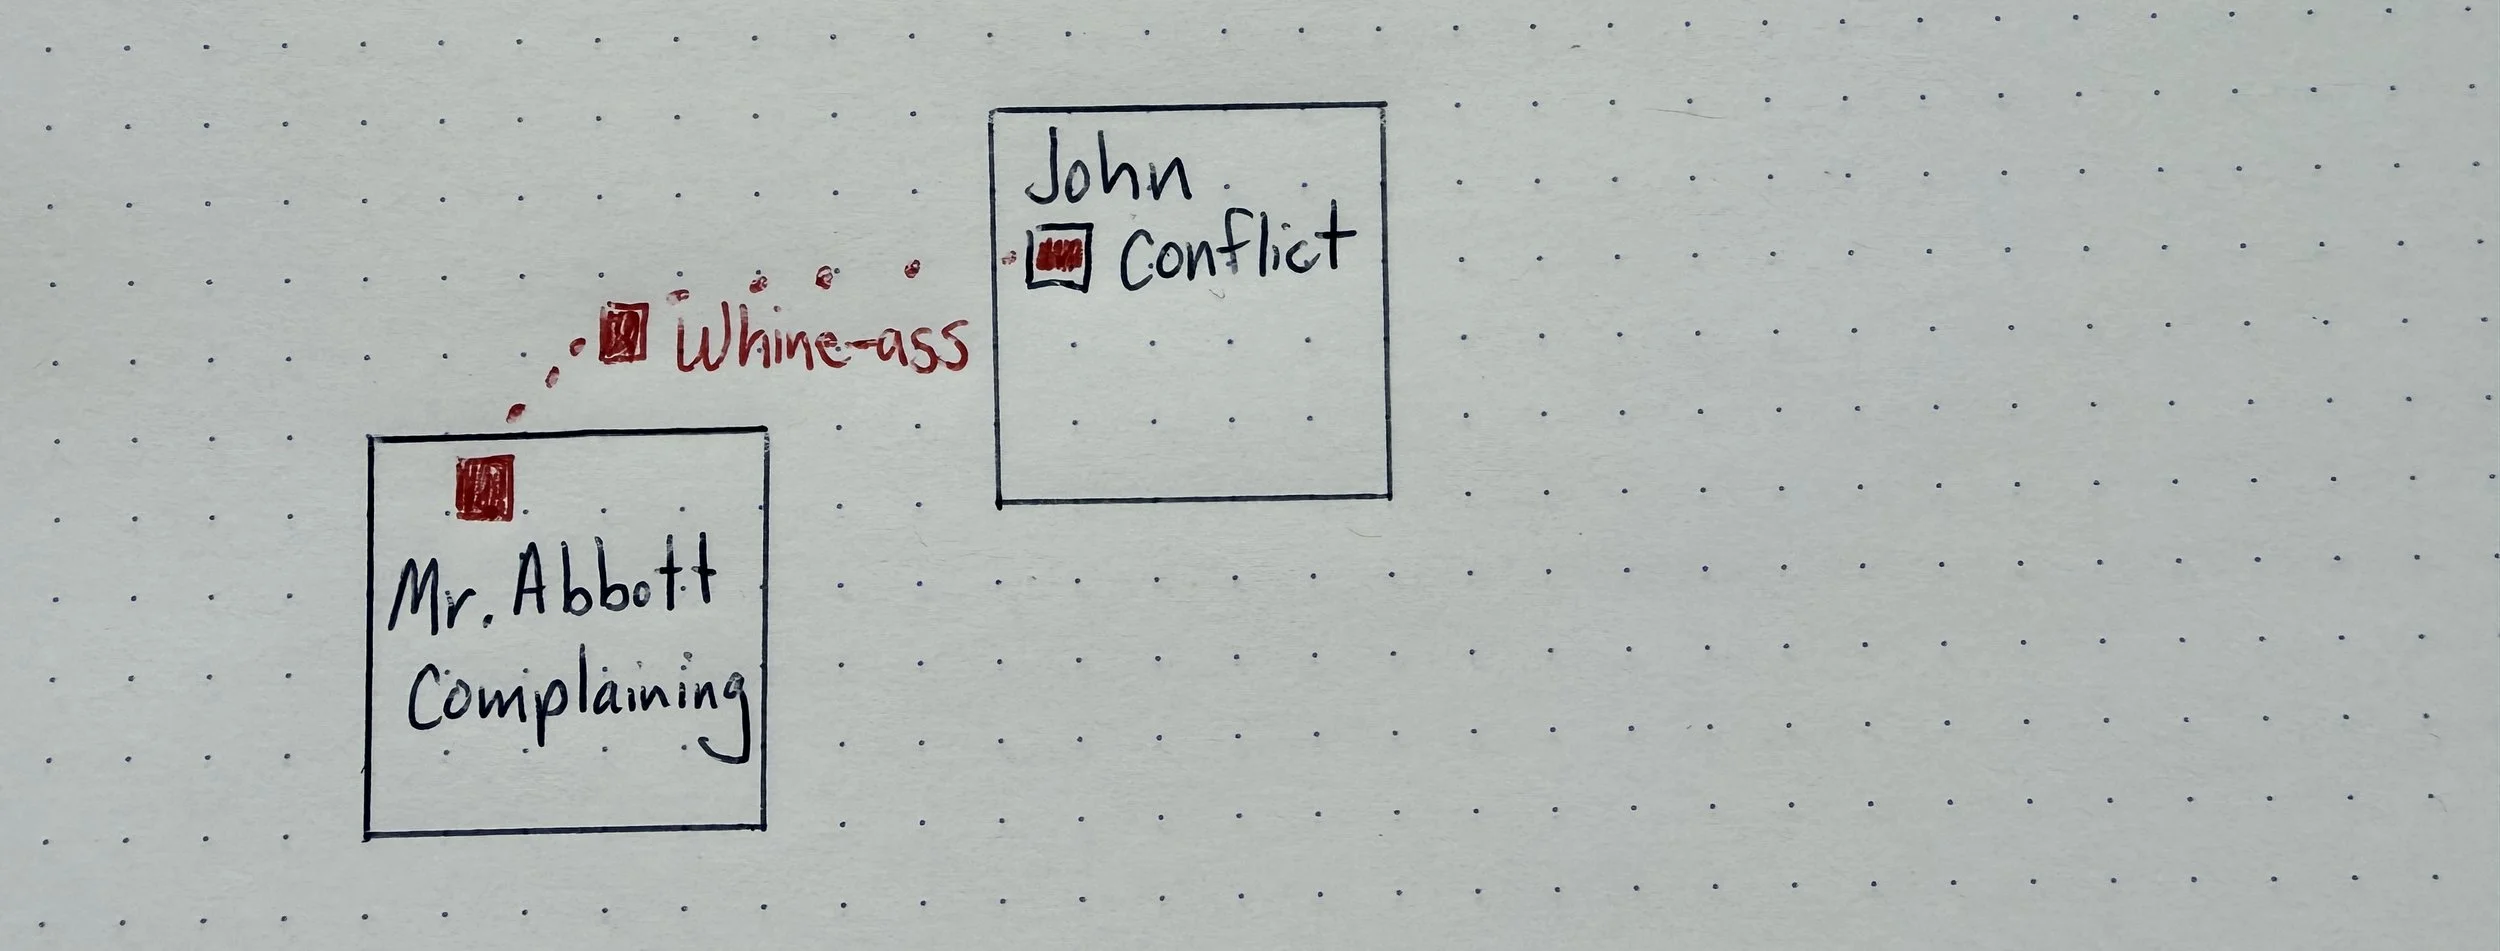 John
Conflict
Whine-ass
Mr. Abbott
Complaining